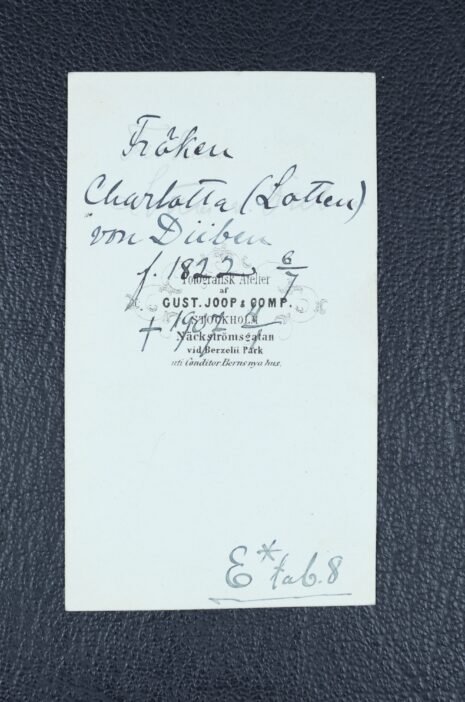 Fröken
Charlotta (Lotten)
von Düben
f. 1822 6/7
Fotografisk Atelier
af
GUST. JOOP & COMP.
STOCKHOLM
† 1902
Näckströmsgatan
vid Berzelii Park
uti Conditor Berns nya hus.
E* tab. 8